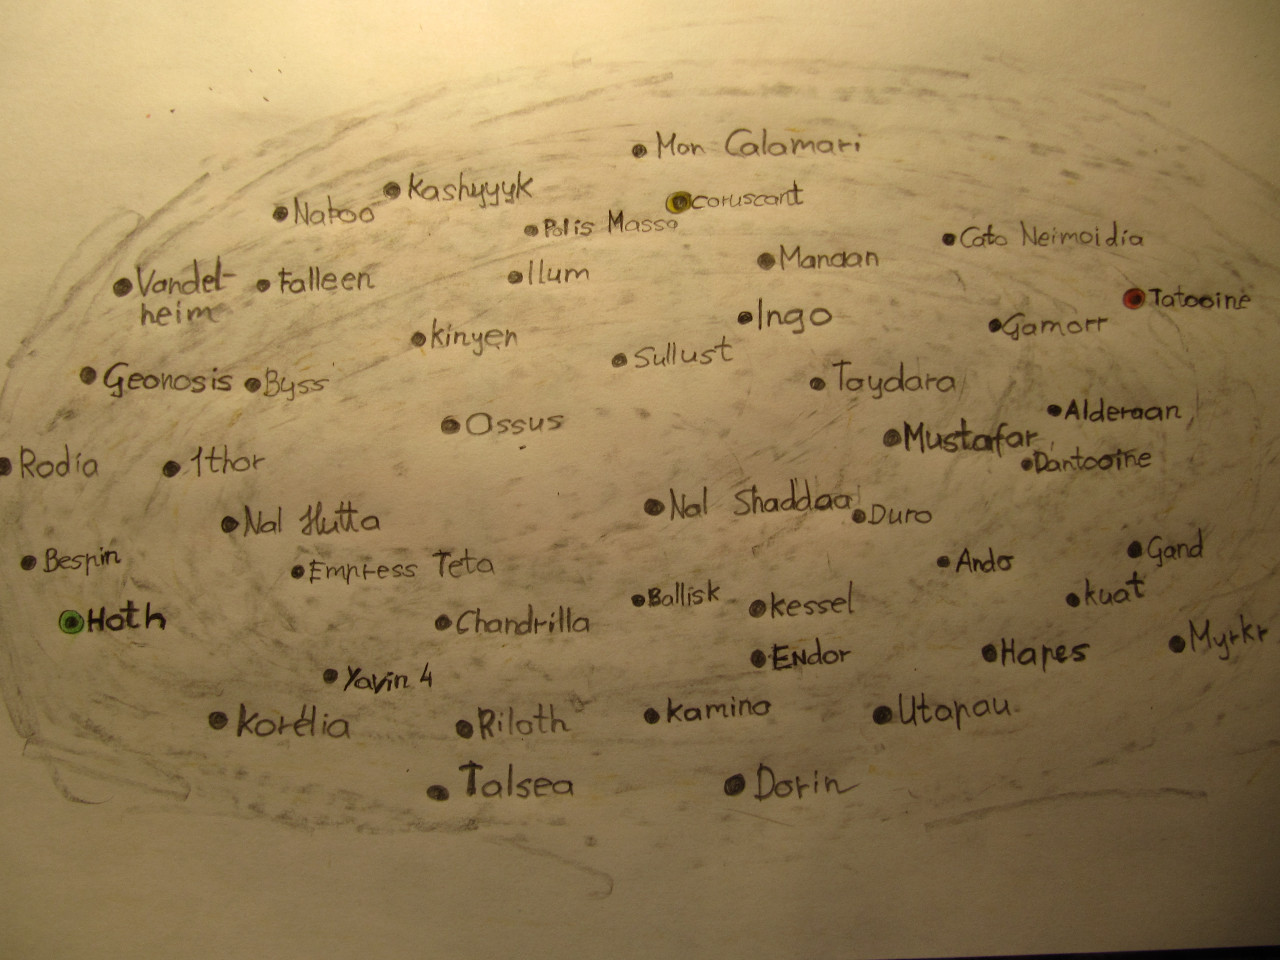 Mon Calamari
Kashyyyk
coruscant
Naboo
Polis Massa
Cato Neimoidia
Manaan
Ilum
Vandel-
heim
Falleen
Tatooine
Ingo
Gamorr
Kinyen
Sullust
Geonosis
Byss
Toydara
Alderaan
Ossus
Mustafar
Dantooine
Rodia
Ithor
Nal Shaddaa
Duro
Nal Hutta
Gand
Bespin
Empress Teta
Ando
Ballisk
Kessel
Kuat
Hoth
Chandrilla
Myrkr
Endor
Hapes
Yavin 4
Korelia
Riloth
Kamino
Utapau
Talsea
Dorin